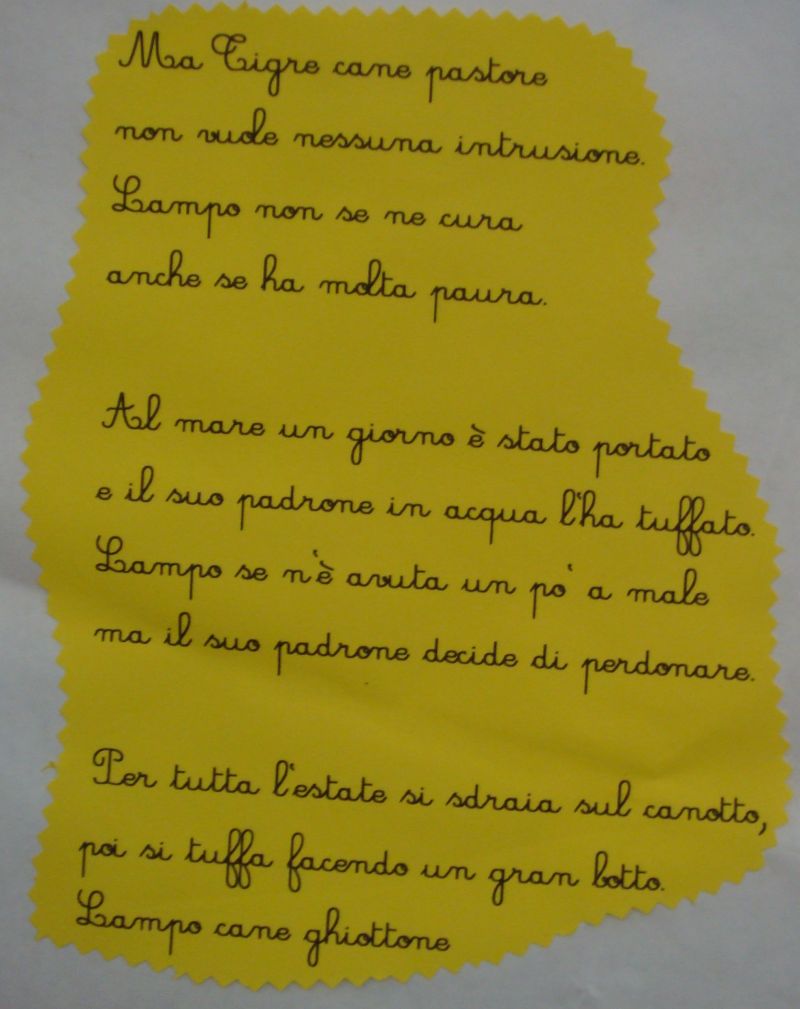 Ma Tigre cane pastore
non vuole nessuna intrusione.
Lampo non se ne cura
anche se ha molta paura.
Al mare un giorno è stato portato
e il suo padrone in acqua l'ha tuffato.
Lampo se n'è avuta un po' a male
ma il suo padrone decide di perdonare.
Per tutta l'estate si sdraia sul canotto,
poi si tuffa facendo un gran botto.
Lampo cane ghiottone